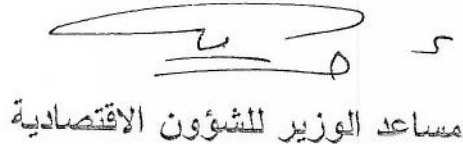 مساعد الوزير للشؤون الاقتصادية